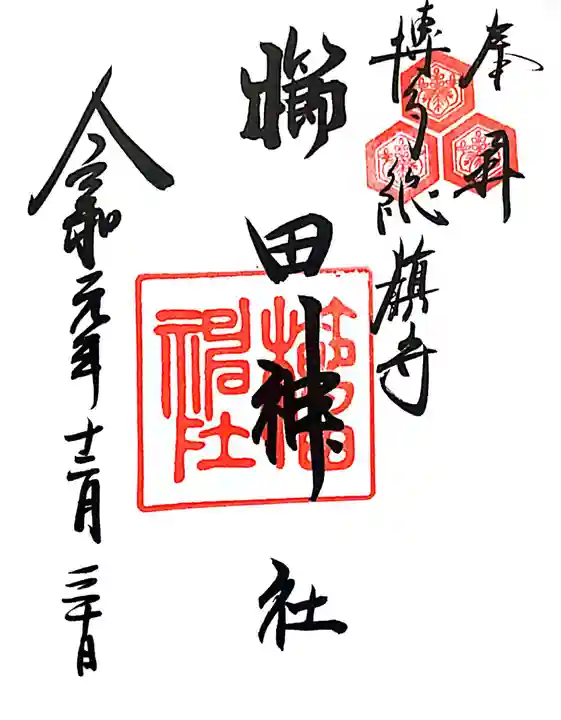 奉拝
博多総鎮守
櫛田神社
櫛田
神社
令和元年十二月二十日